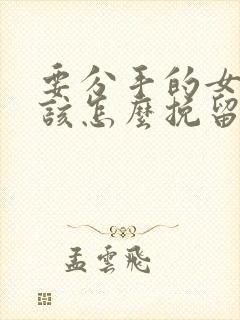 要分手的女
該怎麼挽留
孟雲飛